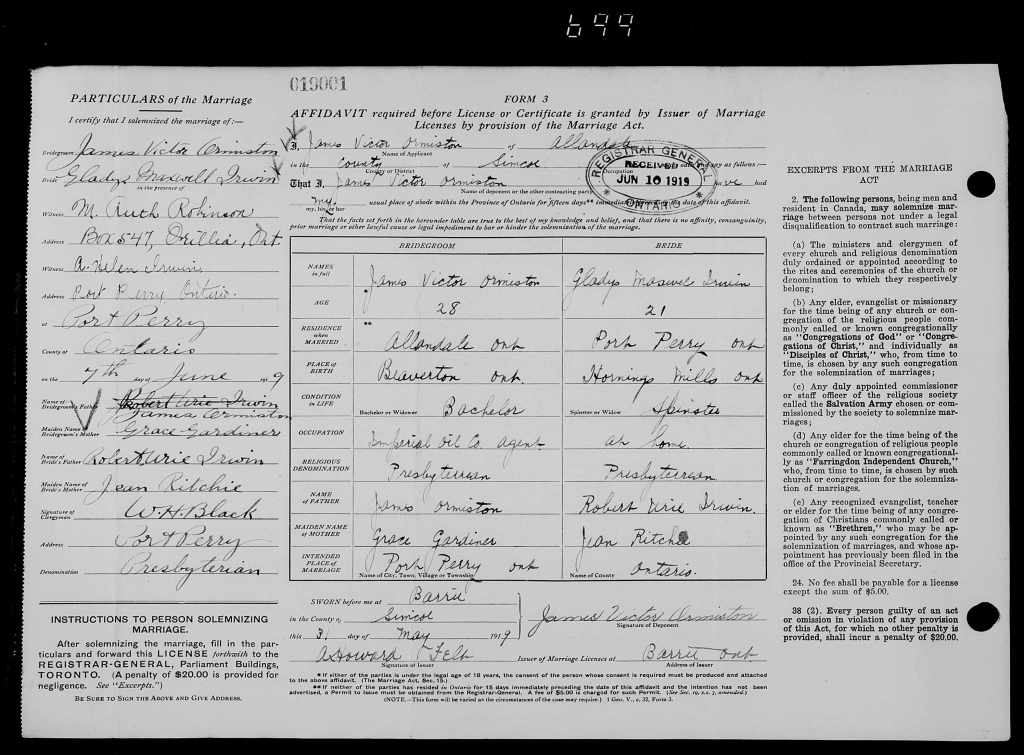 699
019001
PARTICULARS of the Marriage
I certify that I solemnized the marriage of:—
Bridegroom James Victor Ormiston
Bride Gladys Maxwell Irwin
in the presence of
Witness M. Ruth Robinson
Address Box 547, Orillia, Ont.
Witness A. Helen Irwin
Address Port Perry Ontario.
at Port Perry
County of Ontario
on the 7th day of June 1919
Name of Bridegroom's Father Robert Urie Irwin
James Ormiston
Maiden Name of Bridegroom's Mother Grace Gardiner
Name of Bride's Father Robert Urie Irwin
Maiden Name of Bride's Mother Jean Ritchie
Signature of Clergyman W. H. Black
Address Port Perry
Denomination Presbyterian
INSTRUCTIONS TO PERSON SOLEMNIZING
MARRIAGE.
After solemnizing the marriage, fill in the par-
ticulars and forward this LICENSE forthwith to the
REGISTRAR-GENERAL, Parliament Buildings,
TORONTO. (A penalty of $20.00 is provided for
negligence. See "Excerpts.")
BE SURE TO SIGN THE ABOVE AND GIVE ADDRESS.
FORM 3
AFFIDAVIT required before License or Certificate is granted by Issuer of Marriage
Licenses by provision of the Marriage Act.
I, James Victor Ormiston of Allandale
Name of Applicant
in the County of Simcoe and say as follows:—
County or District Occupation
That I, James Victor Ormiston have had
Name of deponent or the other contracting party
my, his or her usual place of abode within the Province of Ontario for fifteen days** immediately the date of this affidavit.
REGISTRAR GENERAL
RECEIVED
JUN 10 1919
ONTARIO
That the facts set forth in the hereunder table are true to the best of my knowledge and belief, and that there is no affinity, consanguinity,
prior marriage or other lawful cause or legal impediment to bar or hinder the solemnization of the marriage.
BRIDEGROOM BRIDE
NAMES in full James Victor Ormiston Gladys Maxwel Irwin
AGE 28 21
RESIDENCE when MARRIED ** Allandale Ont Port Perry Ont
PLACE of BIRTH Beaverton Ont. Hornings Mills Ont
CONDITION IN LIFE Bachelor or Widower Bachelor Spinster or Widow Spinster
OCCUPATION Imperial Oil Co Agent at home
RELIGIOUS DENOMINATION Presbyterian Presbyterian
NAME OF FATHER James Ormiston Robert Urie Irwin.
MAIDEN NAME of MOTHER Grace Gardiner Jean Ritchie
INTENDED PLACE of MARRIAGE Port Perry Ont Ontario.
Name of City, Town, Village or Township Name of County
SWORN before me at Barrie
in the County of Simcoe
this 31 day of May 1919
James Victor Ormiston
Signature of Deponent
A Howard Felt Issuer of Marriage Licenses at Barrie Ont
Signature of Issuer Address of Issuer
* If either of the parties is under the legal age of 18 years, the consent of the person whose consent is required must be produced and attached
to the above affidavit. (The Marriage Act, Sec. 15.)
** If neither of the parties has resided in Ontario for 15 days immediately preceding the date of this affidavit and the intention has not been
advertised, a Permit to issue must be obtained from the Registrar-General. A fee of $5.00 is charged for such Permit. (See Sec. 19, s.s. 2, amended.)
(NOTE.—This form will be varied as the circumstances of the case may require.) 1 Geo. V., c. 32, Form 3.
EXCERPTS FROM THE MARRIAGE
ACT
2. The following persons, being men and
resident in Canada, may solemnize mar-
riage between persons not under a legal
disqualification to contract such marriage:
(a) The ministers and clergymen of
every church and religious denomination
duly ordained or appointed according to
the rites and ceremonies of the church or
denomination to which they respectively
belong;
(b) Any elder, evangelist or missionary
for the time being of any church or con-
gregation of the religious people com-
monly called or known congregationally
as "Congregations of God" or "Congre-
gations of Christ," and individually as
"Disciples of Christ," who, from time to
time, is chosen by any such congregation
for the solemnization of marriages;
(c) Any duly appointed commissioner
or staff officer of the religious society
called the Salvation Army chosen or com-
missioned by the society to solemnize mar-
riages;
(d) Any elder for the time being of the
church or congregation of religious people
commonly called or known congregational-
ly as "Farringdon Independent Church,"
who, from time to time, is chosen by such
church or congregation for the solemniza-
tion of marriages.
(e) Any recognized evangelist, teacher
or elder for the time being of any congre-
gation of Christians commonly called or
known as "Brethren," who may be ap-
pointed by any such congregation for the
solemnization of marriages, and whose ap-
pointment has previously been filed in the
office of the Provincial Secretary.
24. No fee shall be payable for a license
except the sum of $5.00.
38 (2). Every person guilty of an act
or omission in violation of any provision
of this Act, for which no other penalty is
provided, shall incur a penalty of $20.00.